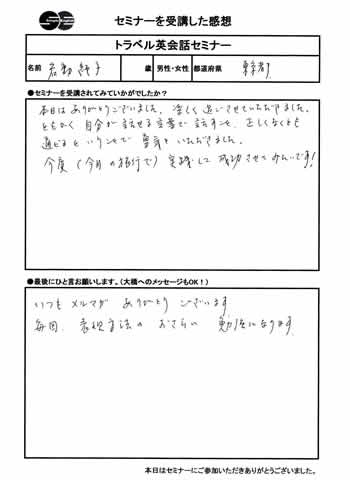 セミナーを受講した感想
トラベル英会話セミナー
名前 歳 男性・女性 都道府県 東京都
●セミナーを受講されてみていかがでしたか?
本日は ありがとうございました。楽しく 過ごさせていただきました。
とにかく 自分が 話せる 言葉で 話すこと、正しくなくとも
通じる ということで 勇気を いただきました。
今度 (今月の旅行で) 実践して 成功させてみたいです!
●最後にひと言お願いします。(大橋へのメッセージもOK!)
いつも メルマガ ありがとう ございます。
毎回、表現方法の おさらい 勉強になります。
本日はセミナーにご参加いただきありがとうございました。